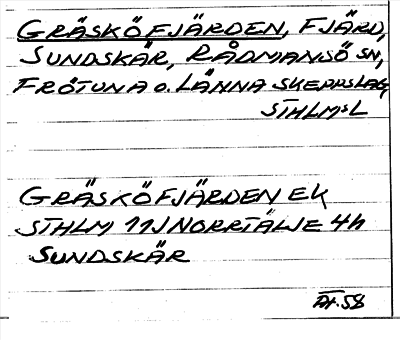 GRÄSKÖFJÄRDEN, FJÄRD,
SUNDSKÄR, RÅDMANSÖ SN,
FRÖTUNA O. LÄNNA SKEPPSLAG,
STHLMS L
GRÄSKÖFJÄRDEN EK
STHLM 11J NORRTÄLJE 4h
SUNDSKÄR